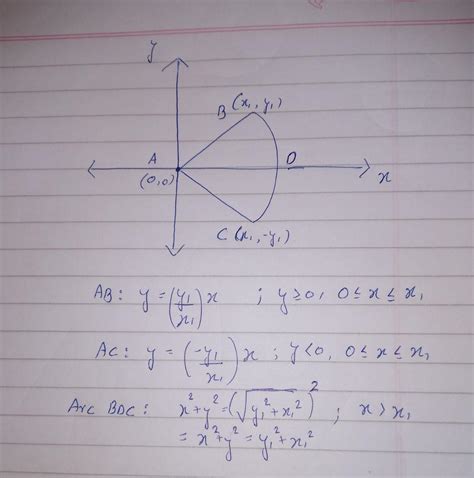 y
B (x₁, y₁)
A
D
(0,0)
x
C (x₁, -y₁)
AB: y = (y₁/x₁) x ; y ≥ 0, 0 ≤ x ≤ x₁
AC: y = (-y₁/x₁) x ; y < 0, 0 ≤ x ≤ x₁
Arc BDC: x² + y² = (√(y₁² + x₁²))² ; x > x₁
= x² + y² = y₁² + x₁²